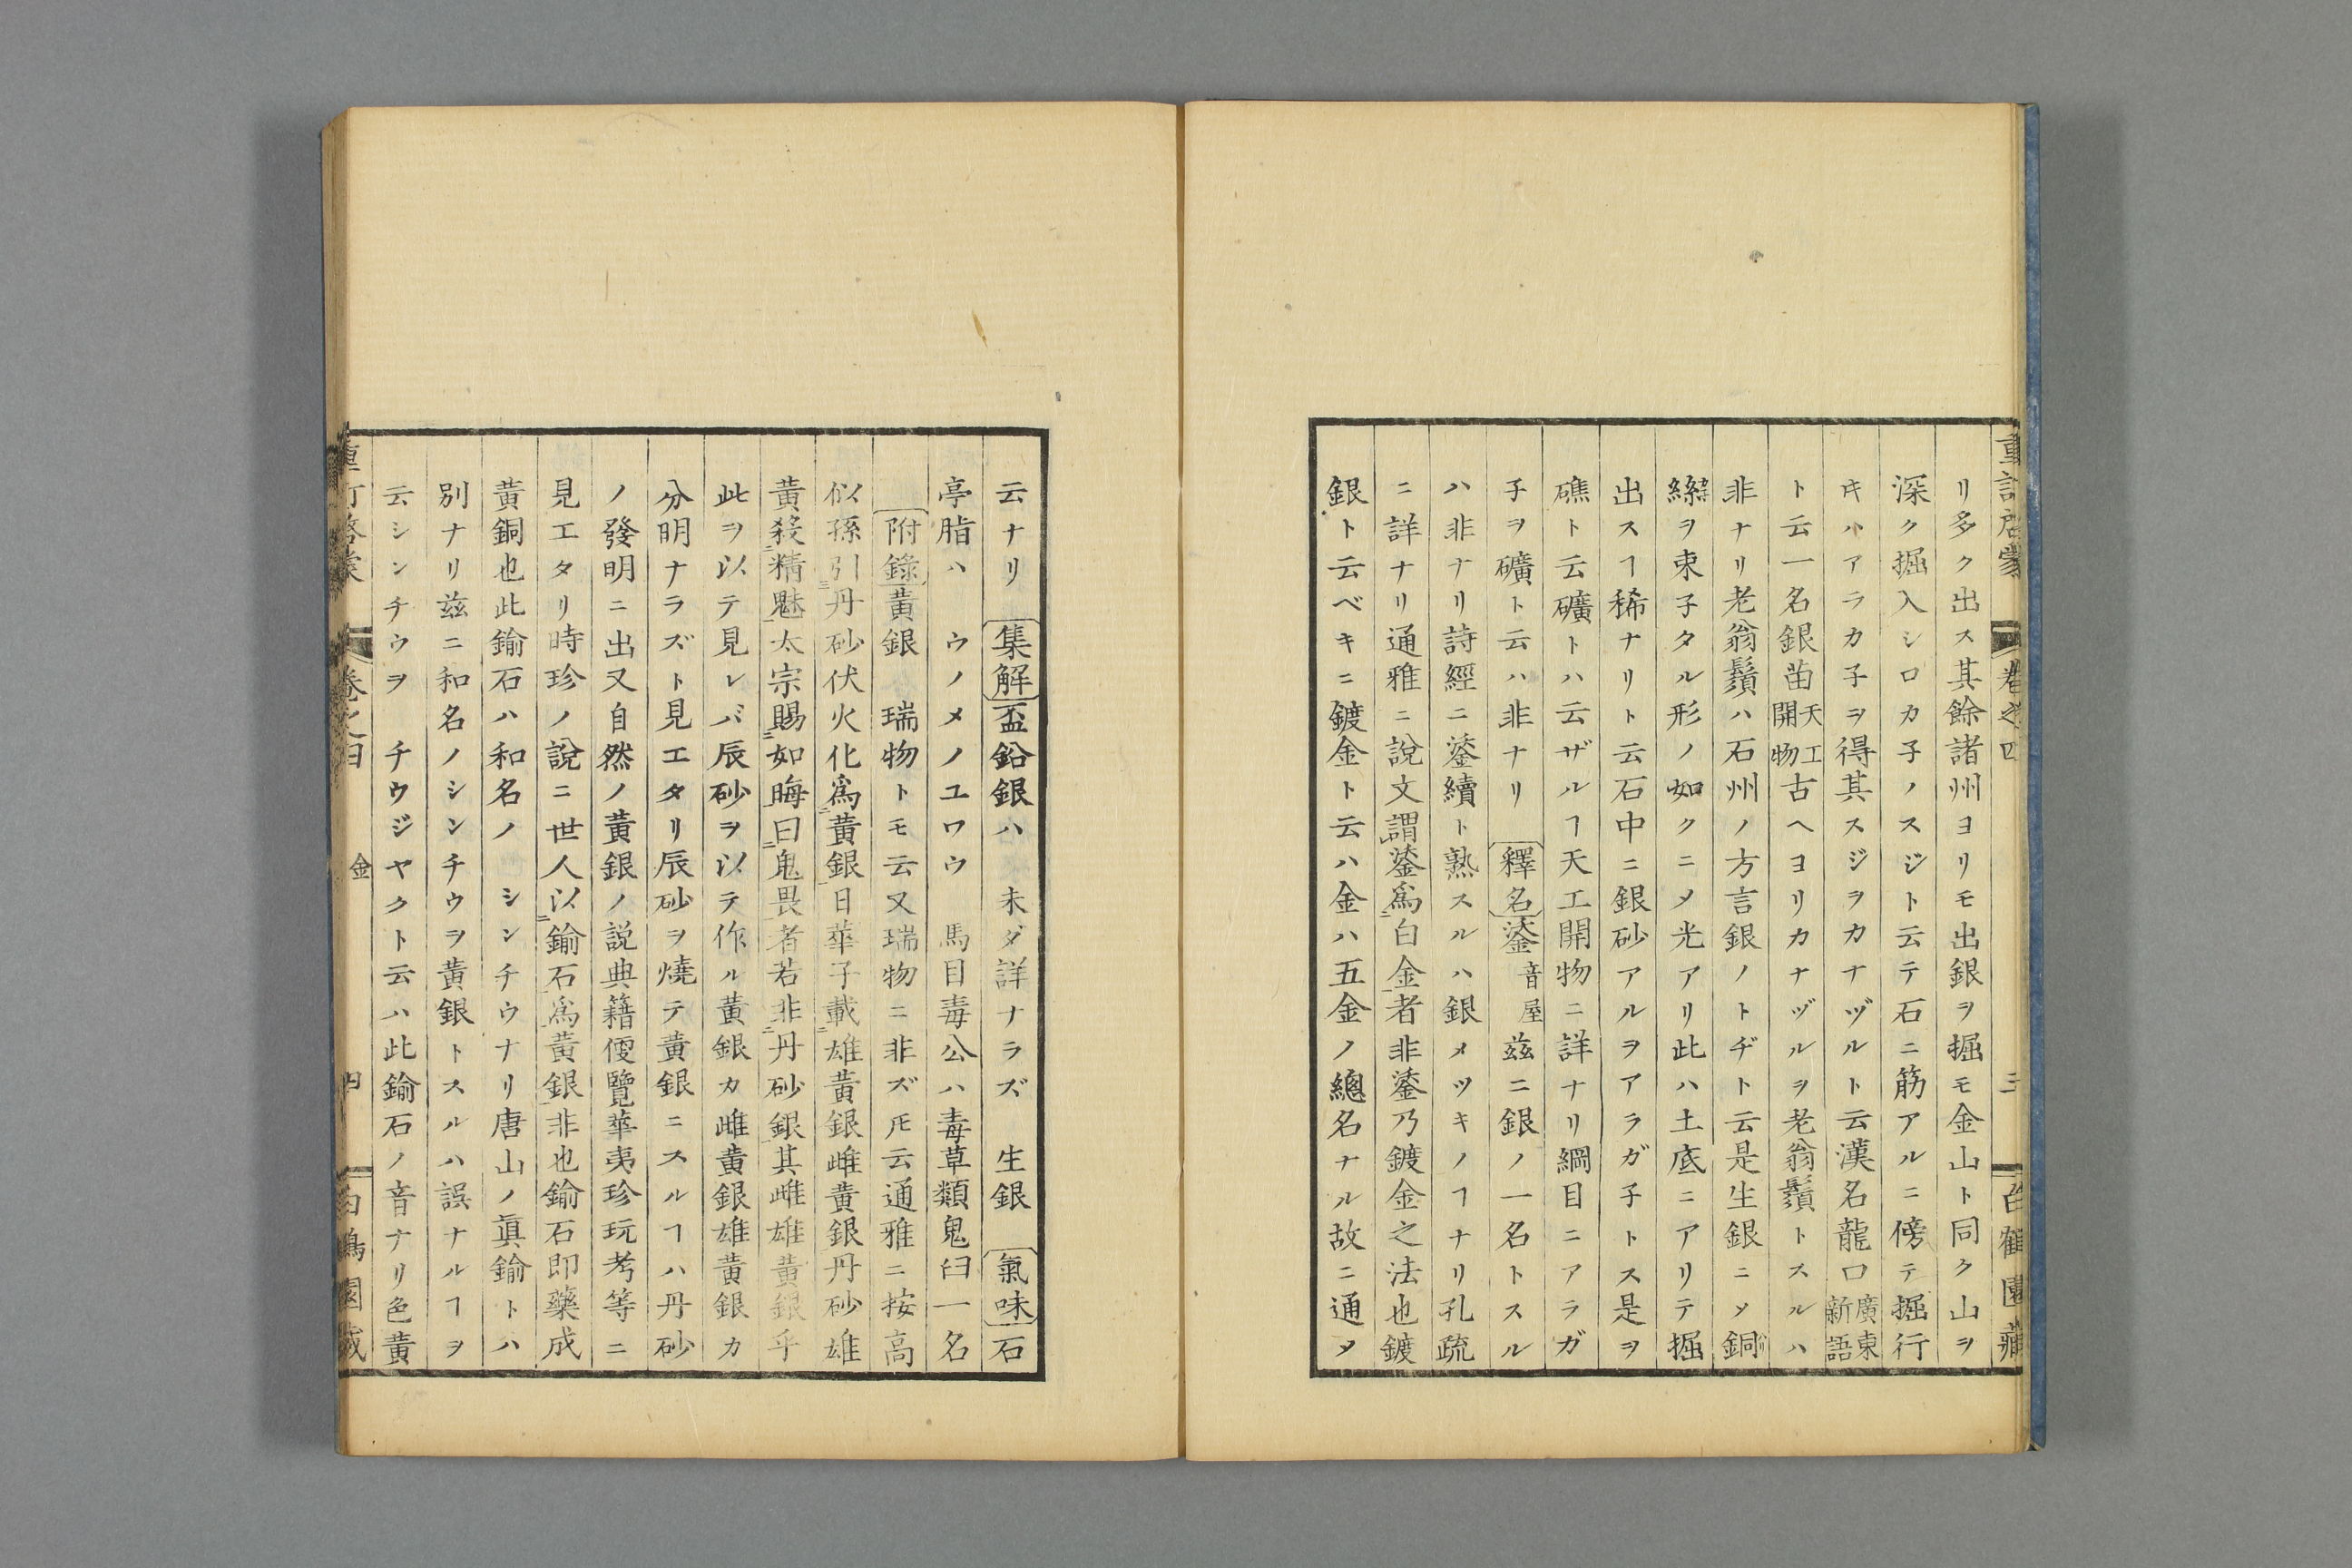 重訂啓蒙 卷之四 三 白鶴園藏
リ多ク出ス其餘諸州ヨリモ出銀ヲ掘モ金山ト同ク山ヲ
深ク掘入シロカ子ノスジト云テ石ニ筋アルニ傍テ掘行
キハアラカ子ヲ得其スジヲカナヅルト云漢名龍口廣東新語
ト云一名銀苗天工開物古ヘヨリカナヅルヲ老翁鬚トスルハ
非ナリ老翁鬚ハ石州ノ方言銀ノトヂト云是生銀ニ〆銅
絲ヲ束子タル形ノ如クニ〆光アリ此ハ土底ニアリテ掘
出スヿ稀ナリト云石中ニ銀砂アルヲアラガ子トス是ヲ
礁ト云礦トハ云ザルヿ天工開物ニ詳ナリ綱目ニアラガ
子ヲ礦ト云ハ非ナリ 釋名 鋈音屋 茲ニ銀ノ一名トスル
ハ非ナリ詩經ニ鋈續ト熟スルハ銀メツキノヿナリ孔疏
ニ詳ナリ通雅ニ說文謂鋈爲白金者非鋈乃鍍金之法也鍍
銀ト云ベキニ鍍金ト云ハ金ハ五金ノ總名ナル故ニ通〆
云ナリ 集解 盃鉛銀ハ 未ダ詳ナラズ 生銀 氣味 石
亭脂ハ ウノメノユワウ 馬目毒公ハ毒草類鬼臼一名
附錄 黃銀 瑞物トモ云又瑞物ニ非ズ𪜈云通雅ニ按高
似孫引丹砂伏火化爲黃銀日華子載雄黃銀雌黃銀丹砂雄
黃殺精魅太宗賜如晦曰鬼畏者若非丹砂銀其雌雄黃銀乎
此ヲ以テ見レバ辰砂ヲ以テ作ル黃銀カ雌黃銀雄黃銀カ
分明ナラズト見エタリ辰砂ヲ燒テ黃銀ニスルヿハ丹砂
ノ發明ニ出又自然ノ黃銀ノ説典籍便覽華夷珍玩考等ニ
見エタリ時珍ノ說ニ世人以鍮石爲黃銀非也鍮石即藥成
黃銅也此鍮石ハ和名ノ シンチウナリ唐山ノ眞鍮トハ
別ナリ茲ニ和名ノシンチウヲ黃銀トスルハ誤ナルヿヲ
云シンチウヲ チウジヤクト云ハ此鍮石ノ音ナリ色黃
重訂啓蒙 卷之四 金 四 白鶴園藏